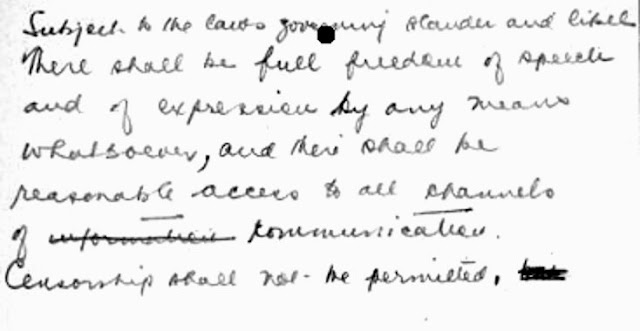 Subject to the laws governing slander and libel
There shall be full freedom of speech
and of expression by any means
whatsoever, and there shall be
reasonable access to all channels
of information communication.
Censorship shall not be permitted.